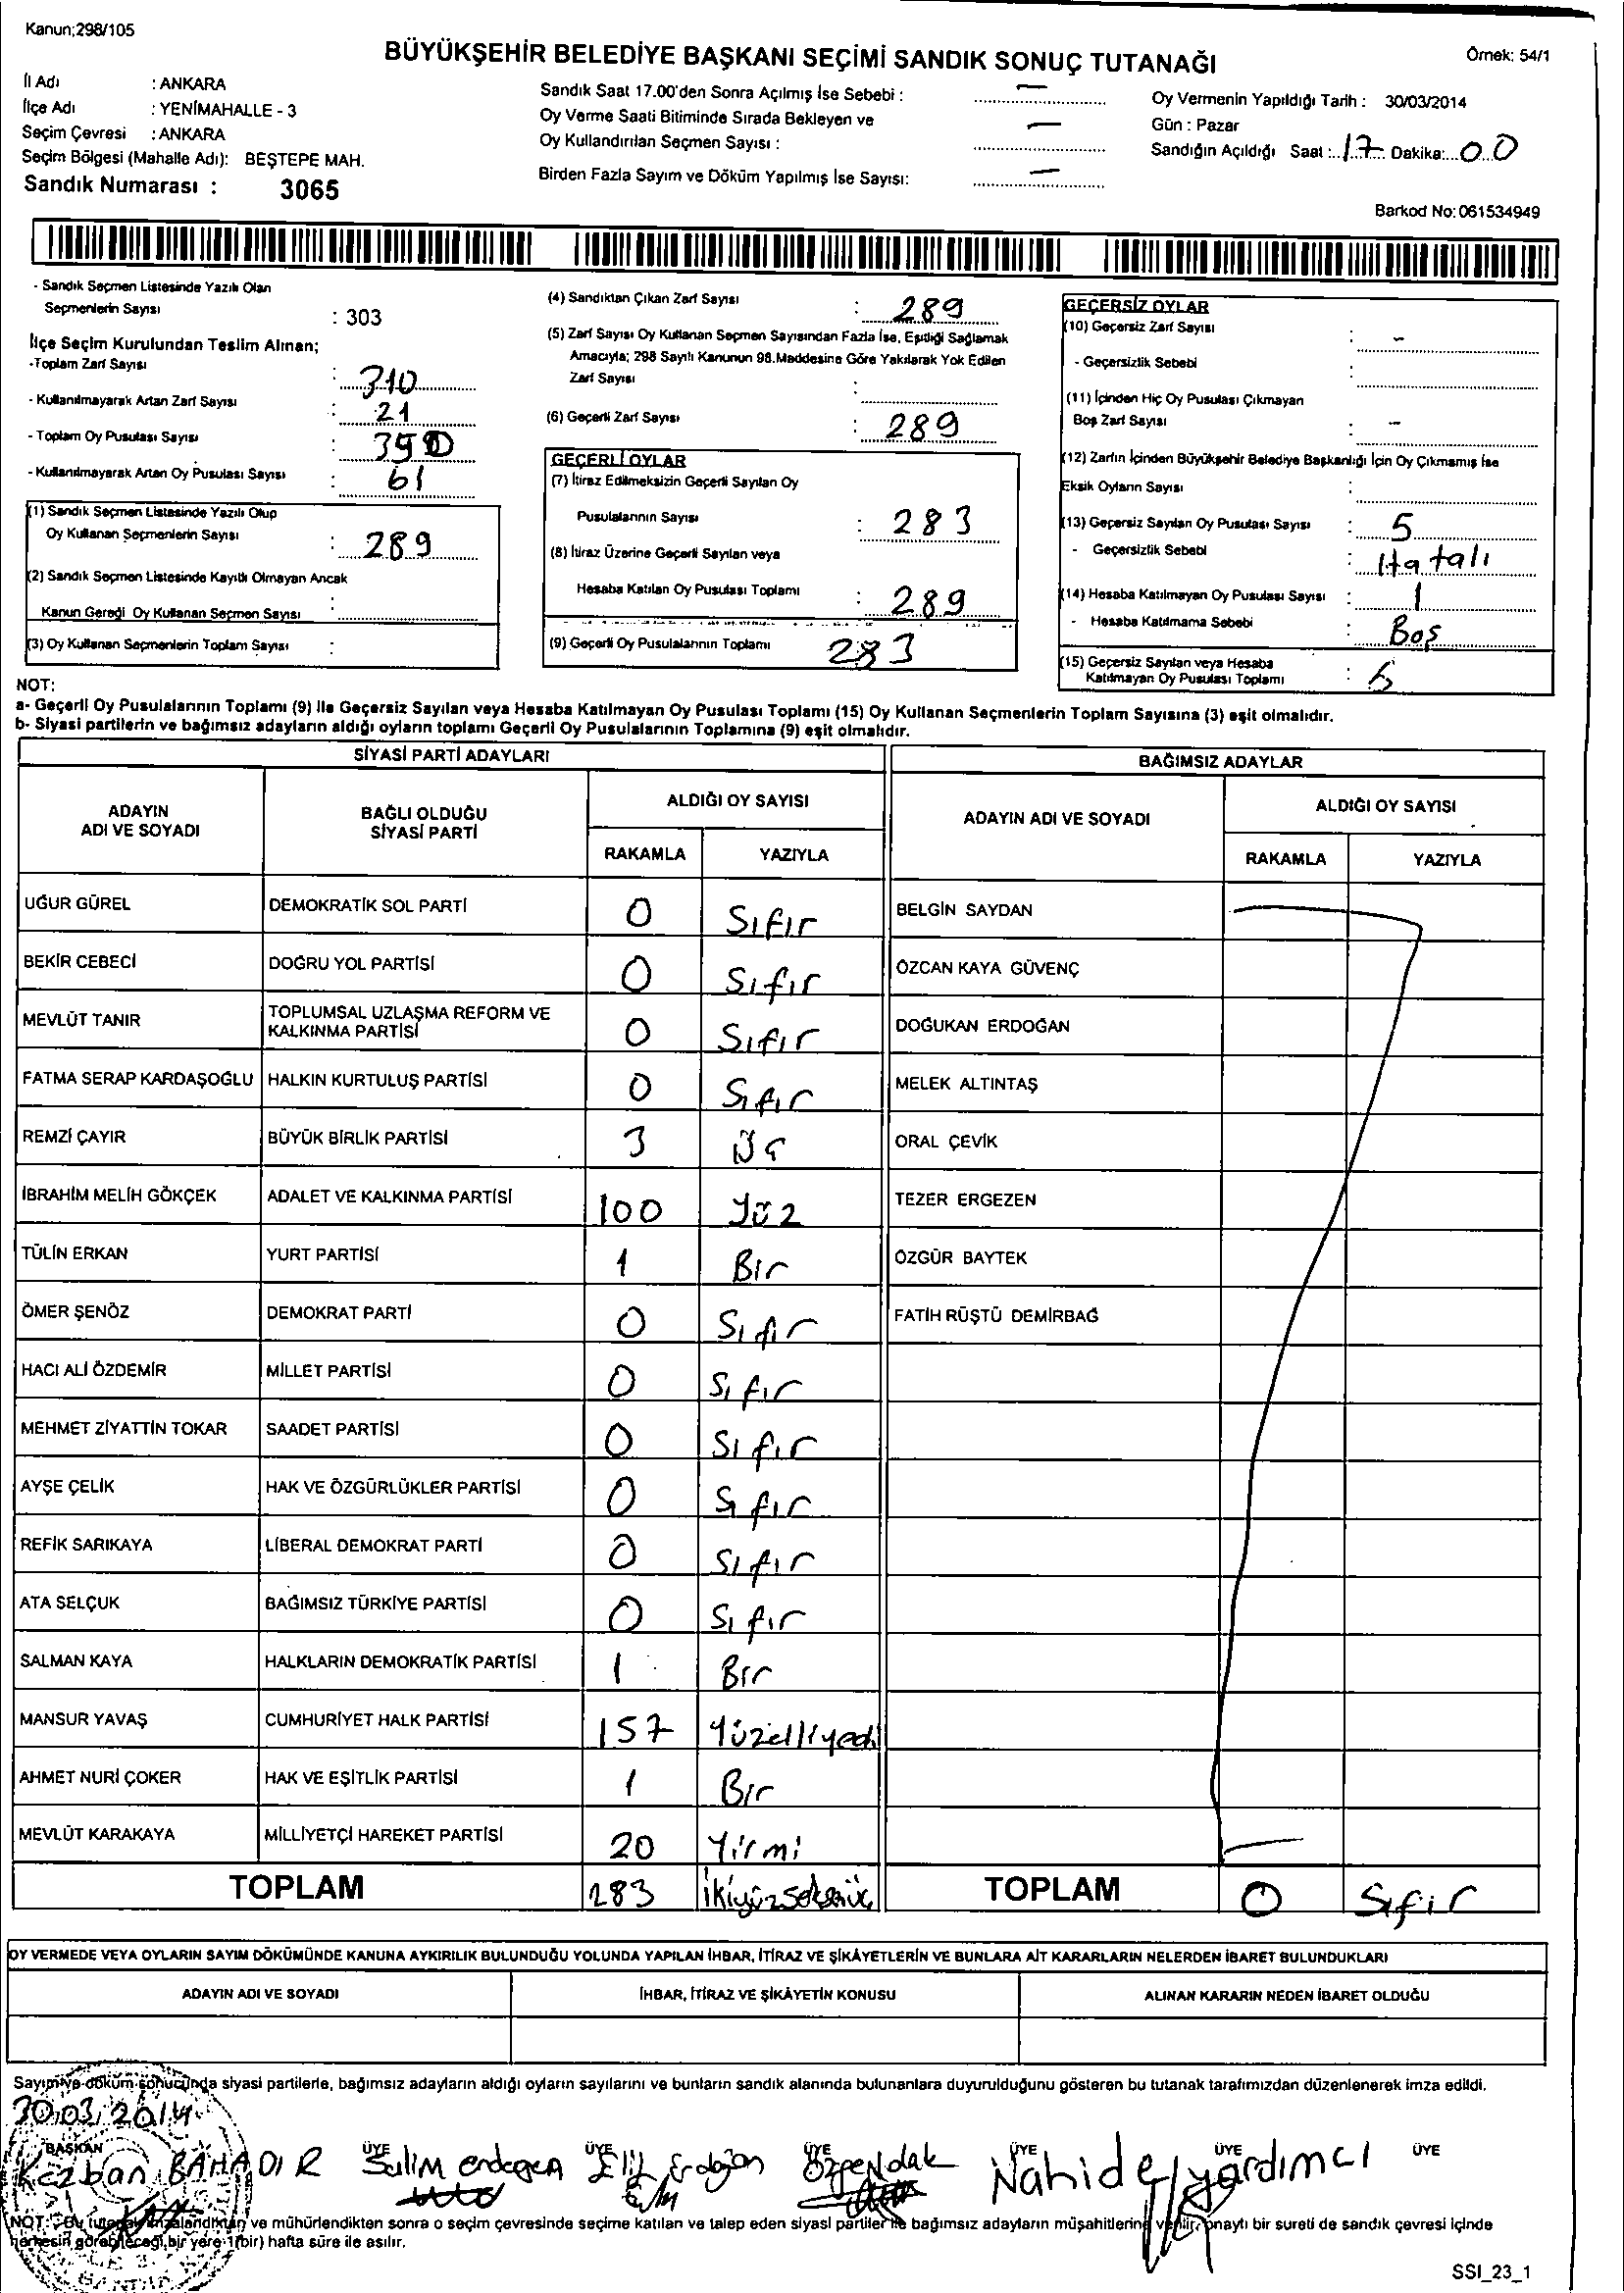 Kanun;298/105
BÜYÜKŞEHİR BELEDİYE BAŞKANI SEÇİMİ SANDIK SONUÇ TUTANAĞI
Örnek: 54/1
İl Adı : ANKARA
İlçe Adı : YENİMAHALLE - 3
Seçim Çevresi : ANKARA
Seçim Bölgesi (Mahalle Adı): BEŞTEPE MAH.
Sandık Numarası : 3065
Sandık Saat 17.00'den Sonra Açılmış İse Sebebi : —
Oy Verme Saati Bitiminde Sırada Bekleyen ve
Oy Kullandırılan Seçmen Sayısı : —
Birden Fazla Sayım ve Döküm Yapılmış İse Sayısı: —
Oy Vermenin Yapıldığı Tarih : 30/03/2014
Gün : Pazar
Sandığın Açıldığı Saat : 17 Dakika: 00
Barkod No: 061534949
- Sandık Seçmen Listesinde Yazılı Olan
Seçmenlerin Sayısı : 303
İlçe Seçim Kurulundan Teslim Alınan;
-Toplam Zarf Sayısı : 310
- Kullanılmayarak Artan Zarf Sayısı : 21
- Toplam Oy Pusulası Sayısı : 350
- Kullanılmayarak Artan Oy Pusulası Sayısı : 61
(1) Sandık Seçmen Listesinde Yazılı Olup
Oy Kullanan Seçmenlerin Sayısı : 289
(2) Sandık Seçmen Listesinde Kayıtlı Olmayan Ancak
Kanun Gereği Oy Kullanan Seçmen Sayısı :
(3) Oy Kullanan Seçmenlerin Toplam Sayısı :
(4) Sandıktan Çıkan Zarf Sayısı : 289
(5) Zarf Sayısı Oy Kullanan Seçmen Sayısından Fazla İse, Eşitliği Sağlamak
Amacıyla; 298 Sayılı Kanunun 98.Maddesine Göre Yakılarak Yok Edilen
Zarf Sayısı :
(6) Geçerli Zarf Sayısı : 289
GEÇERLİ OYLAR
(7) İtiraz Edilmeksizin Geçerli Sayılan Oy
Pusulalarının Sayısı : 283
(8) İtiraz Üzerine Geçerli Sayılan veya
Hesaba Katılan Oy Pusulası Toplamı : 289
(9) Geçerli Oy Pusulalarının Toplamı 283
GEÇERSİZ OYLAR
(10) Geçersiz Zarf Sayısı : -
- Geçersizlik Sebebi :
(11) İçinden Hiç Oy Pusulası Çıkmayan
Boş Zarf Sayısı : -
(12) Zarfın İçinden Büyükşehir Belediye Başkanlığı İçin Oy Çıkmamış İse
Eksik Oyların Sayısı :
(13) Geçersiz Sayılan Oy Pusulası Sayısı : 5
- Geçersizlik Sebebi : Hatalı
(14) Hesaba Katılmayan Oy Pusulası Sayısı : 1
- Hesaba Katılmama Sebebi : Boş
(15) Geçersiz Sayılan veya Hesaba
Katılmayan Oy Pusulası Toplamı :
NOT:
a- Geçerli Oy Pusulalarının Toplamı (9) ile Geçersiz Sayılan veya Hesaba Katılmayan Oy Pusulası Toplamı (15) Oy Kullanan Seçmenlerin Toplam Sayısına (3) eşit olmalıdır.
b- Siyasi partilerin ve bağımsız adayların aldığı oyların toplamı Geçerli Oy Pusulalarının Toplamına (9) eşit olmalıdır.
SİYASİ PARTİ ADAYLARI
BAĞIMSIZ ADAYLAR
ADAYIN ADI VE SOYADI
BAĞLI OLDUĞU SİYASİ PARTİ
ALDIĞI OY SAYISI
RAKAMLA YAZIYLA
ADAYIN ADI VE SOYADI
ALDIĞI OY SAYISI
RAKAMLA YAZIYLA
UĞUR GÜREL DEMOKRATİK SOL PARTİ 0 Sıfır BELGİN SAYDAN
BEKİR CEBECİ DOĞRU YOL PARTİSİ 0 Sıfır ÖZCAN KAYA GÜVENÇ
MEVLÜT TANIR TOPLUMSAL UZLAŞMA REFORM VE KALKINMA PARTİSİ 0 Sıfır DOĞUKAN ERDOĞAN
FATMA SERAP KARDAŞOĞLU HALKIN KURTULUŞ PARTİSİ 0 Sıfır MELEK ALTINTAŞ
REMZİ ÇAYIR BÜYÜK BİRLİK PARTİSİ 3 Üç ORAL ÇEVİK
İBRAHİM MELİH GÖKÇEK ADALET VE KALKINMA PARTİSİ 100 Yüz TEZER ERGEZEN
TÜLİN ERKAN YURT PARTİSİ 1 Bir ÖZGÜR BAYTEK
ÖMER ŞENÖZ DEMOKRAT PARTİ 0 Sıfır FATİH RÜŞTÜ DEMİRBAĞ
HACI ALİ ÖZDEMİR MİLLET PARTİSİ 0 Sıfır
MEHMET ZİYATTİN TOKAR SAADET PARTİSİ 0 Sıfır
AYŞE ÇELİK HAK VE ÖZGÜRLÜKLER PARTİSİ 0 Sıfır
REFİK SARIKAYA LİBERAL DEMOKRAT PARTİ 0 Sıfır
ATA SELÇUK BAĞIMSIZ TÜRKİYE PARTİSİ 0 Sıfır
SALMAN KAYA HALKLARIN DEMOKRATİK PARTİSİ 1 Bir
MANSUR YAVAŞ CUMHURİYET HALK PARTİSİ 157 Yüzelliyedi
AHMET NURİ ÇOKER HAK VE EŞİTLİK PARTİSİ 1 Bir
MEVLÜT KARAKAYA MİLLİYETÇİ HAREKET PARTİSİ 20 Yirmi
TOPLAM 283 ikiyüzseksenüç TOPLAM 0 Sıfır
OY VERMEDE VEYA OYLARIN SAYIM DÖKÜMÜNDE KANUNA AYKIRILIK BULUNDUĞU YOLUNDA YAPILAN İHBAR, İTİRAZ VE ŞİKÂYETLERİN VE BUNLARA AİT KARARLARIN NELERDEN İBARET BULUNDUKLARI
ADAYIN ADI VE SOYADI İHBAR, İTİRAZ VE ŞİKÂYETİN KONUSU ALINAN KARARIN NEDEN İBARET OLDUĞU
Sayım ve döküm sonucunda siyasi partilerle, bağımsız adayların aldığı oyların sayılarını ve bunların sandık alanında bulunanlara duyurulduğunu gösteren bu tutanak tarafımızdan düzenlenerek imza edildi.
30.03.2014
BAŞKAN ÜYE ÜYE ÜYE ÜYE ÜYE ÜYE
Kezban BAHADIR Salim Elif Erdoğan Özgen dak Nahide yardımcı
NOT: Bu tutanak imzalandıktan ve mühürlendikten sonra o seçim çevresinde seçime katılan ve talep eden siyasi partiler ile bağımsız adayların müşahitlerine verilir, onaylı bir sureti de sandık çevresi içinde
herkesin görebileceği bir yere 1(bir) hafta süre ile asılır.
SSI_23_1